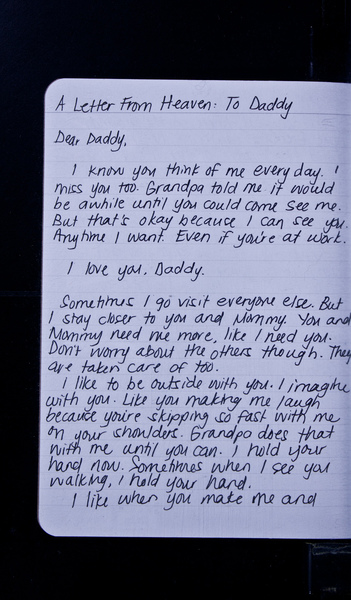 A Letter From Heaven: To Daddy
Dear Daddy,
I know you think of me every day. I
miss you too. Grandpa told me it would
be awhile until you could come see me.
But that's okay because I can see you.
Anytime I want. Even if you're at work.
I love you, Daddy.
Sometimes I go visit everyone else. But
I stay closer to you and Mommy. You and
Mommy need me more, like I need you.
Don't worry about the others though. They
are taken care of too.
I like to be outside with you. I imagine
with you. Like you making me laugh
because you're skipping so fast with me
on your shoulders. Grandpa does that
with me until you can. I hold your
hand now. Sometimes when I see you
walking, I hold your hand.
I like when you make me and